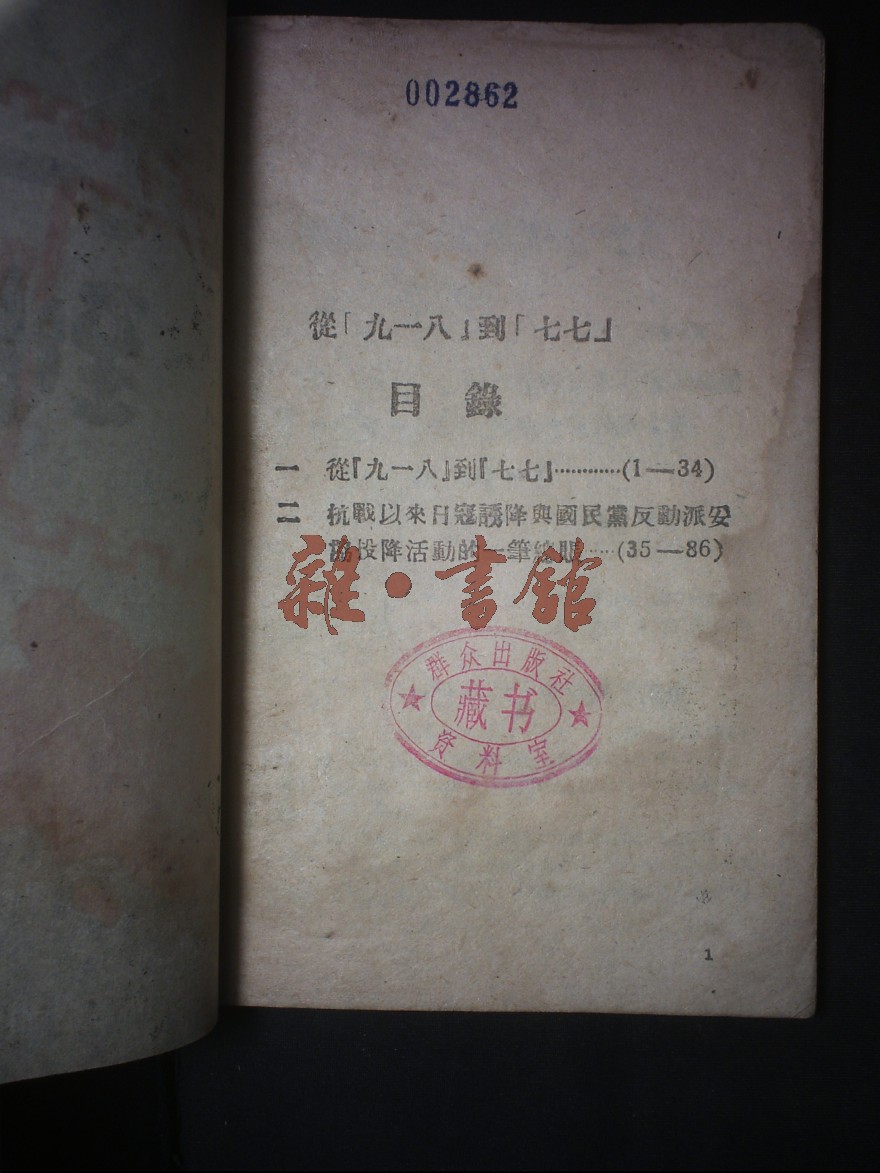 002862
從「九一八」到「七七」
目錄
一 從『九一八』到『七七』…………(1—34)
二 抗戰以來日寇誘降與國民黨反動派妥
協投降活動的一筆總賬……(35—86)
雜·書館
群众出版社
藏书
资料室
1